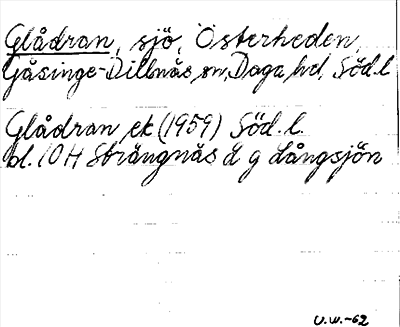 Glådran, sjö, Österheden,
Gåsinge-Dillnäs sn, Daga hd, Söd.l.
Glådran ek (1959) Söd.l.
bl. 10H Strängnäs d g Långsjön
U.W.-62